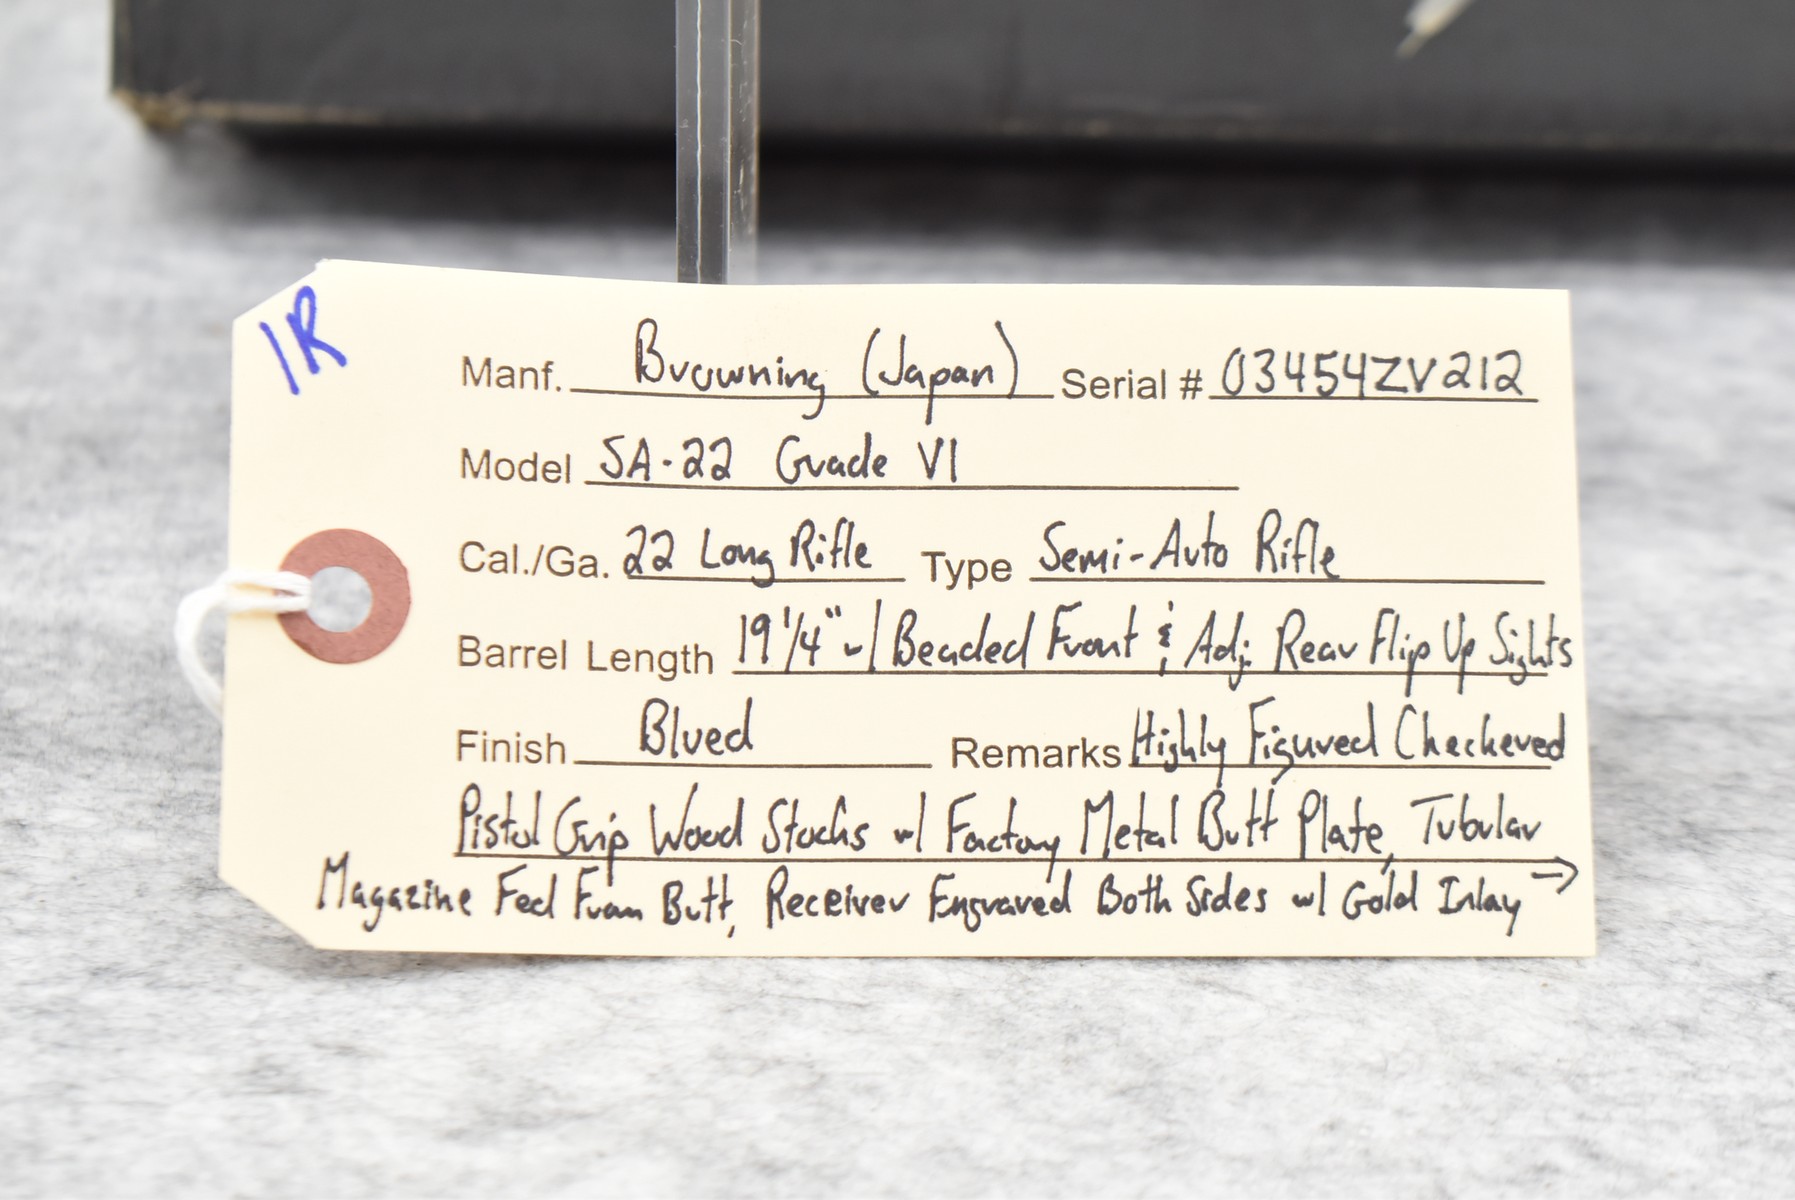 1R
Manf. Browning (Japan) Serial # 03454ZV212
Model SA-22 Grade VI
Cal./Ga. 22 Long Rifle Type Semi-Auto Rifle
Barrel Length 19 1/4" w/ Beaded Front & Adj. Rear Flip Up Sights
Finish Blued Remarks Highly Figured Checkered
Pistol Grip Wood Stocks w/ Factory Metal Butt Plate, Tubular
Magazine Fed From Butt, Receiver Engraved Both Sides w/ Gold Inlay →